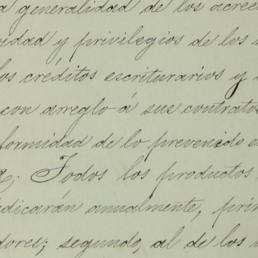 a generalidad de los acree
ridad y privilegios de los
los créditos escriturarios y
con arreglo á sus contratos
formidad de lo prevenido e
Todos los productos
dicarán anualmente, pri
dores; segundo, al de los